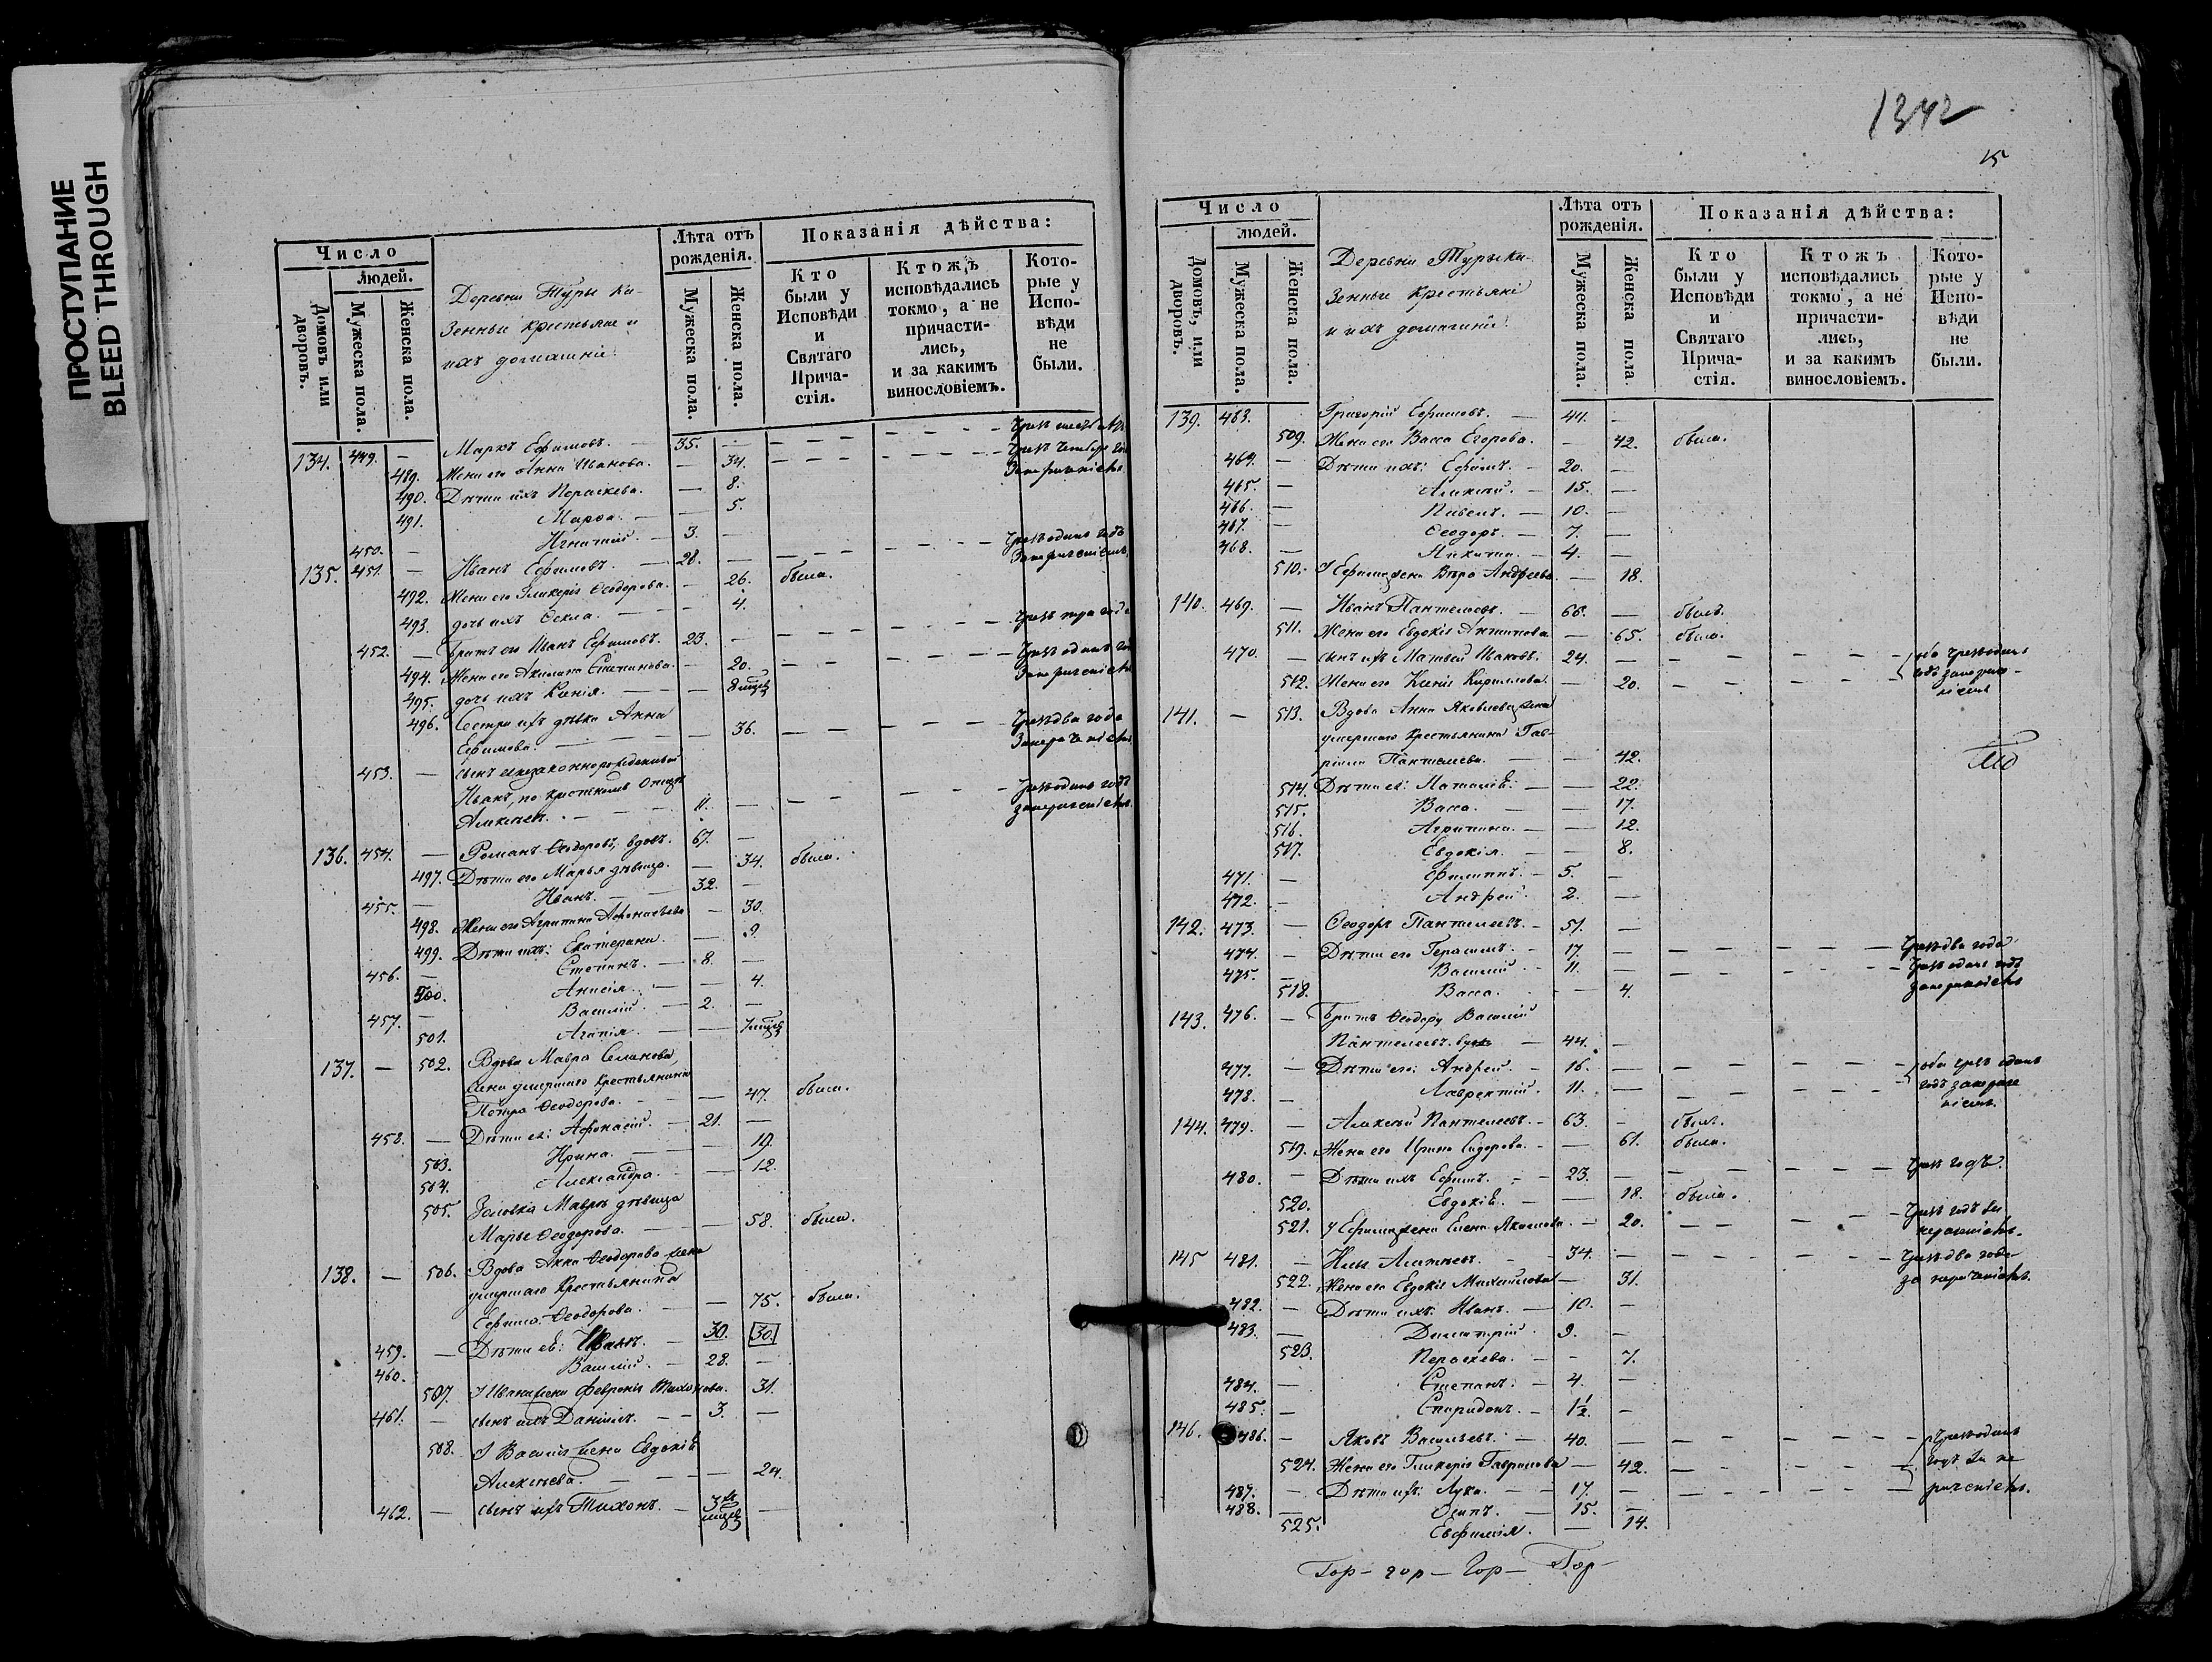 ПРОСТУПАНИЕ
BLEED THROUGH
Число
людей.
Домовъ или дворовъ.
Мужеска пола.
Женска пола.
Деревни Туры Ка-
зенные крестьяне и
ихъ домашніе.
Лѣта отъ рожденія.
Мужеска пола.
Женска пола.
Показанія дѣйства:
Кто были у Исповѣди и Святаго Прича-стія.
Ктожъ исповѣдались токмо, а не причасти-лись, и за какимъ винословіемъ.
Кото-рые у Испо-вѣди не были.
134. 449. — Маркъ Ефимовъ. — 35. —
489. Жена его Анна Иванова. — 34.
490. Дѣти ихъ Параскева. — 8.
491. Марѳа. — 5.
450. — Игнатій — 3. —
135. 451. — Иванъ Ефимовъ. — 28. —
492. Жена его Гликерія Ѳеодорова. — 26. была.
493. дочь ихъ Ѳекла — 4.
452. — Братъ его Иванъ Ефимовъ. 23. —
494. Жена его Акилина Степанова. — 20.
495. дочь ихъ Ксенія. — 8 мцвъ
496. Сестра ихъ дѣвка Анна
Ефимова. — 36.
453. — сынъ незаконнорожденный
Иванъ, по крестномъ Отцѣ
Алексѣев. — 11. —
136. 454. — Романъ Ѳеодоровъ, вдовъ. 67. —
497. Дѣти его Марья дѣвица. — 34. была.
455. — Иванъ. — 32. —
498. Жена его Агрипина Афонасьева — 30.
499. Дѣти ихъ: Екатерина. — 9.
456. — Степанъ. — 8. —
500. Анисія. — 4.
457. — Василій. — 2. —
501. Агапія. —
137. — 502. Вдова Мавра Семенова,
жена умершаго крестьянина
Петра Ѳеодорова. — 47. была.
458. — Дѣти ея: Афонасій. — 21. —
503. Ирина. — 19.
504. Александра. — 12.
505. Золовка Мавры дѣвица
Марья Ѳеодорова. — 58. была.
138. — 506. Вдова Анна Ѳеодорова жена
умершаго Крестьянина
Ефима Ѳеодорова. — 75. была.
459. — Дѣти ея: Иванъ. — 30. 30.
460. Василій. — 28. —
507. У Ивана жена Февронія Тихонова. 31.
461. — сынъ ихъ Даніилъ. — 3. —
508. У Василія жена Евдокія
Алексѣева. — 24.
462. — сынъ ихъ Тихонъ. — 3 хъ мцвъ —
1342
15
Число
людей.
Домовъ, или дворовъ.
Мужеска пола.
Женска пола.
Деревни Туры Ка-
зенные крестьяне
и ихъ домашніе.
Лѣта отъ рожденія.
Мужеска пола.
Женска пола
Показанія дѣйства:
Кто были у Исповѣди и Святаго Прича-стія.
Ктожъ исповѣдались токмо, а не причасти-лись, и за какимъ винословіемъ.
Кото-рые у Испо-вѣди не были.
139. 463. Григорій Ефимовъ. — 44. —
509. Жена его Васса Егорова. — 42. была.
464. — Дѣти ихъ: Ефимъ. — 20. —
465. — Алексѣй. — 15. —
466. — Павелъ. — 10. —
467. — Ѳеодоръ. — 7. —
468. — Никита. — 4. —
510. У Ефима жена Вѣра Андреева. — 18.
140. 469. — Иванъ Пантелеевъ. — 66. — былъ.
511. Жена его Евдокія Антипова — 65. была.
470. — сынъ ихъ Матвей Ивановъ. 24. — оба чрезъ одинъ
годъ
512. Жена его Ксенія Кириллова. — 20.
141. — 513. Вдова Анна Яковлева жена
умершаго Крестьянина Гав-
ріила Пантелеева. — 42.
514. Дѣти ея: — 22.
515. Васса. — 17.
516. Агрипина. — 12.
517. Евдокія. — 8.
471. — Филиппъ. — 5. —
472. — Андрей. 2. —
142. 473. — Ѳеодоръ Пантелеевъ. — 51. —
474. — Дѣти его Герасимъ. — 17. — чрезъ два года
475. — Василій — 11. — чрезъ одинъ годъ
518. Васса. — 4.
143. 476. — Братъ Ѳеодору Василій
Пантелеевъ. — 44. —
477. — Дѣти его: Андрей. — 16. — оба чрезъ одинъ
478. — Лаврентій. 11. —
144. 479. — Алексѣй Пантелеевъ. — 63. — былъ.
519. Жена его Ирина Сидорова. — 61. была.
480. — Дѣти ихъ Ефимъ. — 23. — чрезъ годъ.
520. Евдокія. — 18. была.
521. У Ефима жена Елена — 20. чрезъ годъ
145 481. — Илья Алексѣевъ. — 34. — чрезъ два года
522. Жена его Евдокія Михайлова — 31.
482. — Дѣти ихъ: Иванъ. — 10. —
483. — Димитрій. 9. —
523. Параскева. — 7.
484. — Степанъ. — 4. —
485. — Спиридонъ. — 1½. —
146. 486. — Яковъ Васильевъ. — 40. — чрезъ одинъ
524. Жена его Гликерія Гаврилова — 42. годъ
487. — Дѣти ихъ: Лука. — 17. —
488. — Осипъ. — 15. —
525. Евфимія. — 14.
Гор — гор — Гор — Гор